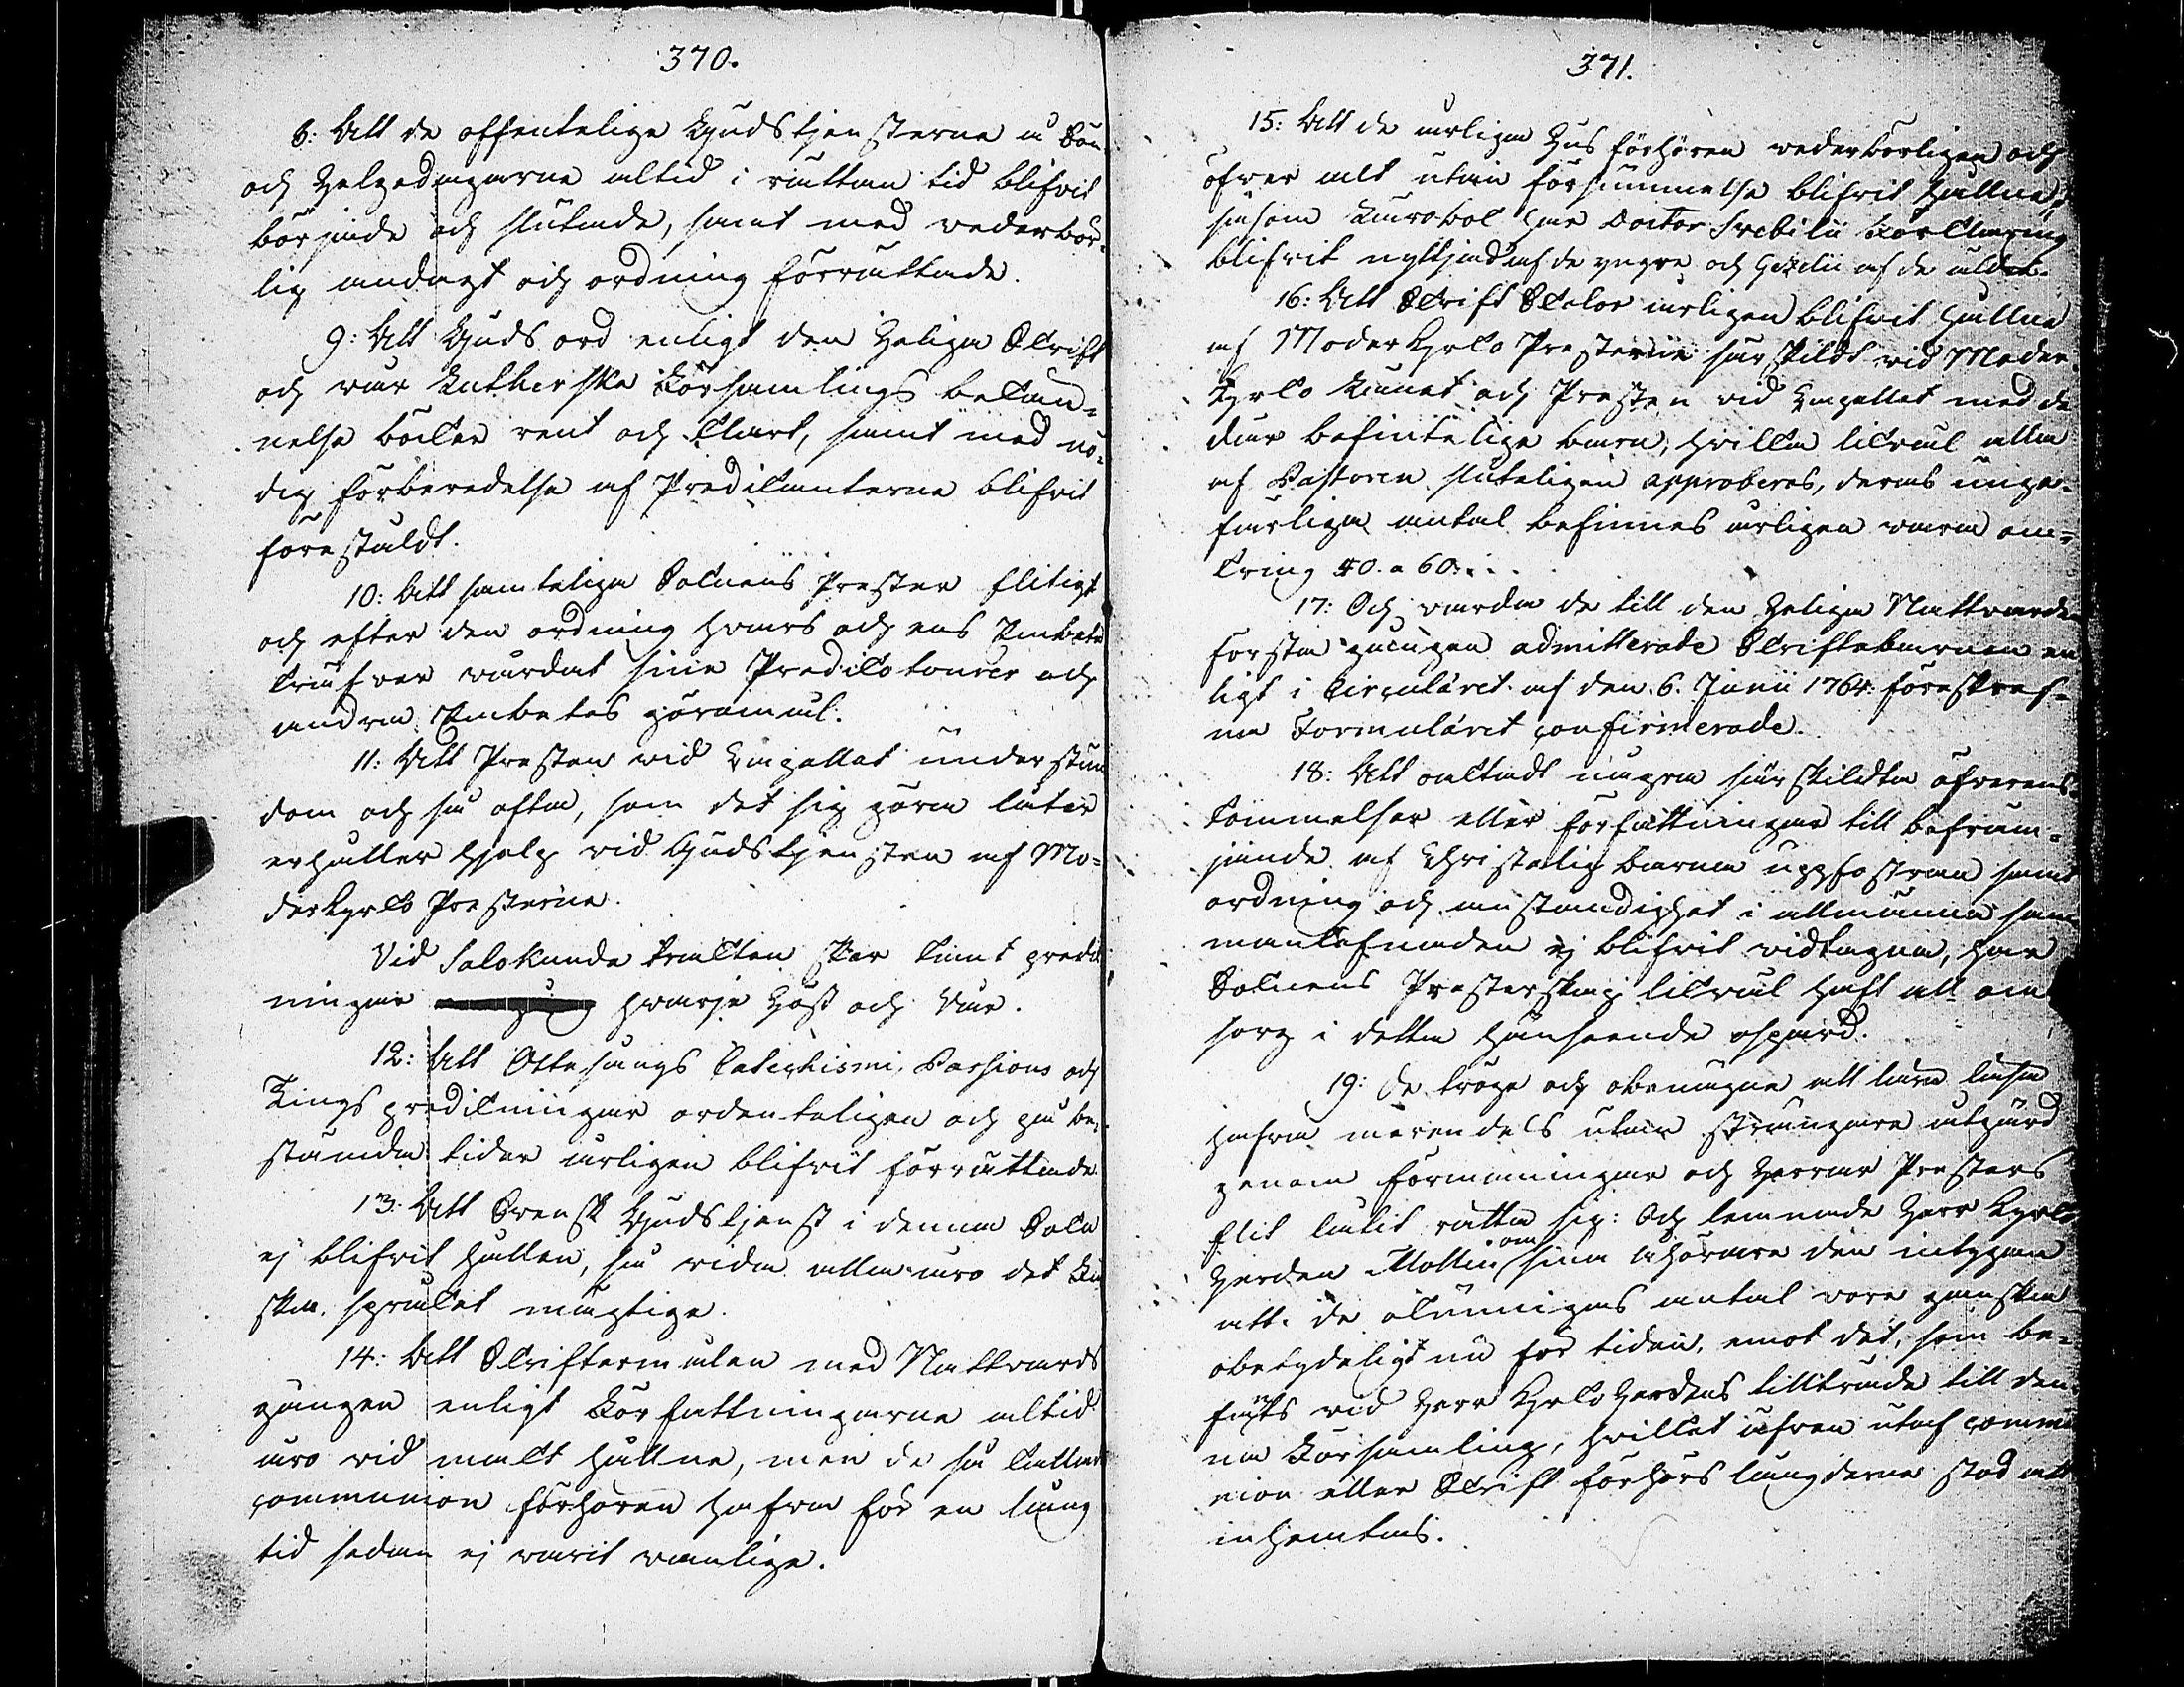 370.
8: Att de offentelige Gudstjensterne å Bön
och Helgedagarne altid i rättan tid blifvit
började och slutade, samt med vederbör-
lig andagt och ordning förrättade.
9: Att Guds ord enligt den Heliga Skrift
och vår Lutherska Församlings bekän-
nelse böcker rent och klart, samt med nö-
dig förberedelse af Predikanterne blifvit
förestäldt.
10: Att samtelige Soknens Prester flitigt
och efter den ordning hvars och ens Embete
kräfver vårdat sine Predikoturer och
andra Embetes göromål.
11: Att Presten vid Capellet understun
dom och så ofta, som det sig göra låter
erhåller hjelp vid Gudstjensten af Mo-
derkyrko Presterne.
Vid Salokunda trakten sker tvent predik
ningar hvarje Höst och Vår.
12: Att Ottesångs Catechismi, Passions och
Tings predikningar ordenteligen och på be-
stämda tider årligen blifvit förrättade.
13. Att Svensk Gudstjenst i denna Sokn
ej blifvit hållen, så vida alla äro det Fin
ska språket mägtige.
14: Att Skriftermålen med Nattvards
gången enligt Författningarne altid
äro vid magt hållne, men de så kallade
communion förhören hafva för en lång
tid sedan ej varit vanlige.
371.
15: Att de årliga Hus förhören vederbörligen och
öfver alt utan försummelse blifvit hållne,
såsom Lärobok har Doctor Svebilii Förklaring
blifvit nyttjad af de yngre och Gezelii af de äldre.
16: Att Skrift Skolor årligen blifvit hållne
af Moderkyrko Presterne särskildt vid Moder
kyrko Lännet och Presten vid Capellet med de
där befintelige barn, hvilka likväl alla
af Pastoren sluteligen approberas, deras unge-
färliga antal befinnes årligen vara om-
kring 50. a 60. . .
17: Och varda de till den Heliga Nattvarden
första gången admitterade Skriftebarnen en
ligt i Circuläret af den 6. Junii 1764. föreskref-
na Formuläret confirmerade.
18: Att oaktadt ingen särskildta öfverens-
kommelser eller författningar till befräm-
jande af Christelig barna uppfostran samt
ordning och anständighet i allmänna sam
mankefnaden ej blifvit vidtagna, har
Soknens Presterskap likväl haft all om
sorg i detta hänseende ospard.
19: De tröge och obenägne att lära läsa
hafva merendels utan strängare utgärd
genom förmaningar och Herrar Presters
flit låtit rätta sig: Och lemnade Herr Kyrko
Herden Mollin om sina åhörare den intygan
att. de okunnigas antal vore ganska
obetydeligt nu för tiden, emot det, som be-
fants vid Herr Kyrko Herdens tillträde till den
na Församling, hvilket äfven utaf commu
nion eller Skrift förhörs längderne stod att
inhemtas.